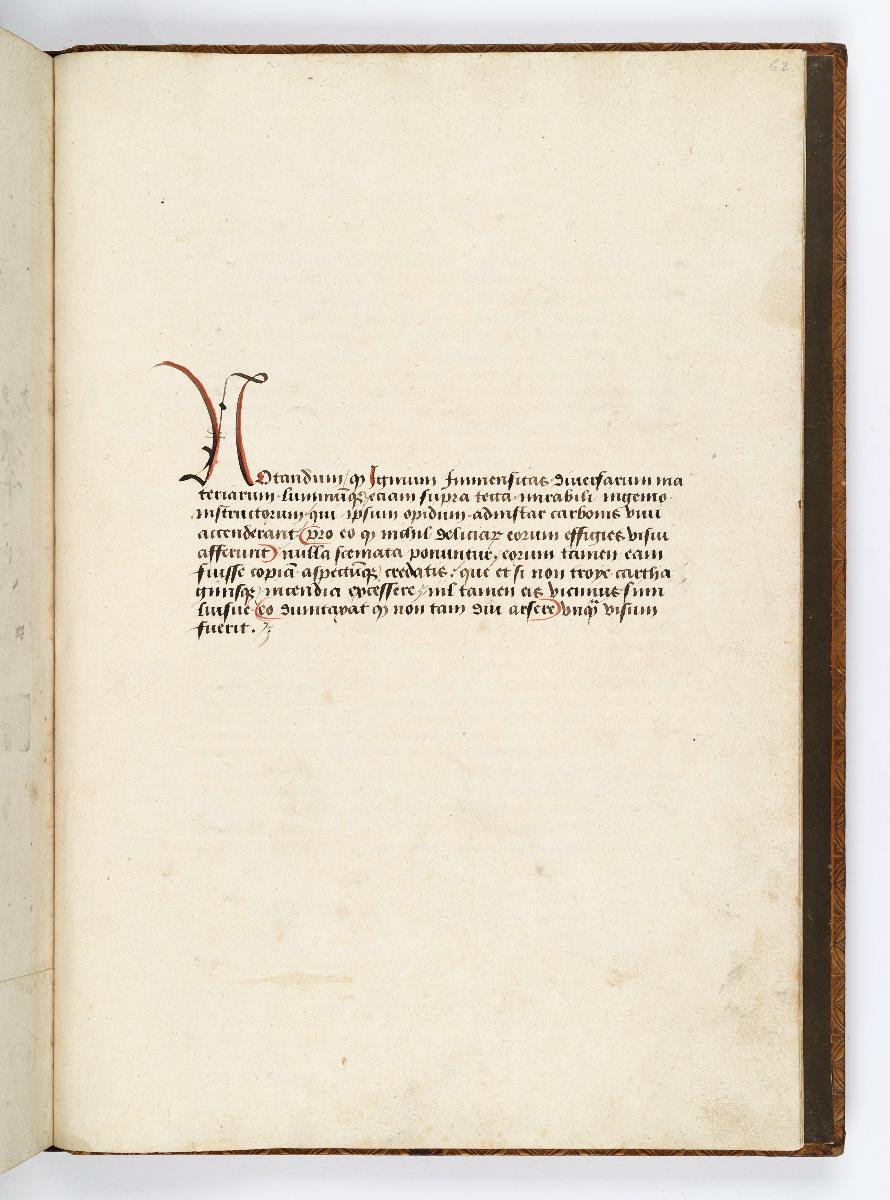 62
NOtandum / ꝙ Ignium Inmensitas diuersarum ma
teriarum luminūqꝫ eciam supra tecta mirabili ingenio
instructorum qui ipsum opidum adinstar carbonis viui
accenderant (pro eo ꝙ nichil deliciaꝝ eorum effigies visui
afferunt) nulla scemata ponuntur, eorum tamen eam
fuisse copiā aspectūqꝫ credatis: que et si non troye cartha
ginisqꝫ incendia excessere, nil tamen eis vicinius simi
liusue (eo dumtaxat ꝙ non tam diu arsere) vnqꝫ visum
fuerit.